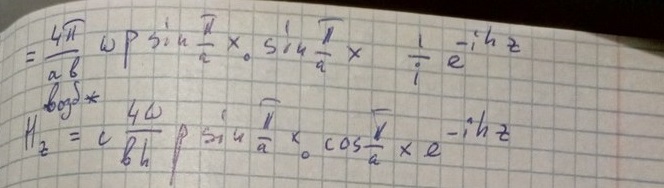 = 4π/aв ω p sin π/a x₀ sin π/a x 1/i e^-ihz
возб *
H_z = c 4ω/вh p sin π/a x₀ cos π/a x e^-ihz